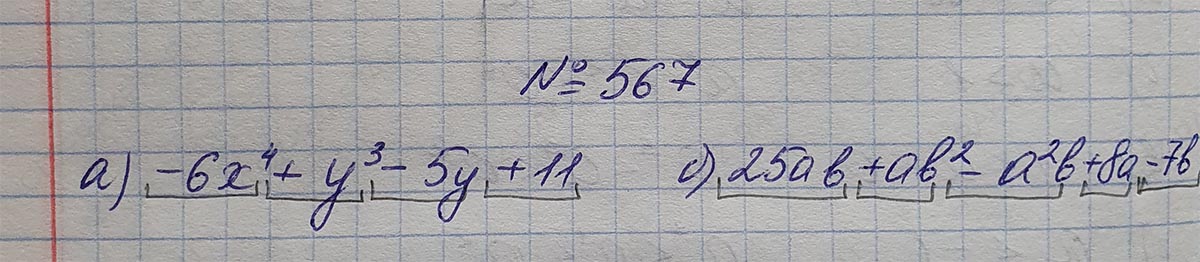 № 567
а) -6x⁴ + y³ - 5y + 11 б) 25ab + ab² - a²b + 8a - 7b